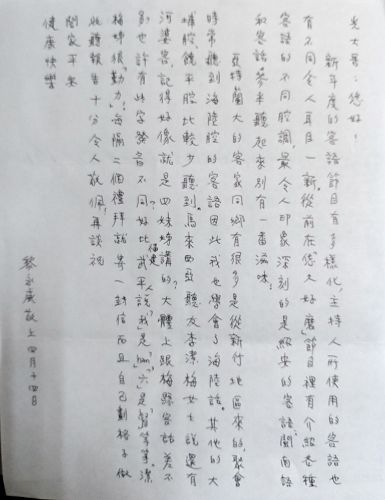 光大哥：您好！
新年度的客語節目有多樣化，主持人所使用的客語也
有不同，令人耳目一新。從前在「您大好磨」節目裡有介紹各種
客語的不同腔調，最令人印象深刻的是詔安的客語，閩南語
和客語參半，聽起來別有一番滋味。
亞特蘭大的客家同鄉有很多是從新竹地區來的，聚會
時常聽到海陸腔的客語，因此我也學會了海陸話。其他的大
埔腔、饒平腔比較少聽到。馬來西亞聽友李潔梅女士說還有
河婆客，記得好像就是四妹姊講的？大體上跟梅縣客語差不
多，也許有些字發音不同？好比武平(福建)人說「我」是「hang」「六」是等等。潔
梅姊很勤力，每隔二個禮拜就寄一封信，而且自己劃格子做
收聽報告，十分令人敬佩！再談 祝
闔家平安
健康快樂
黎永廣敬上 四月十四日